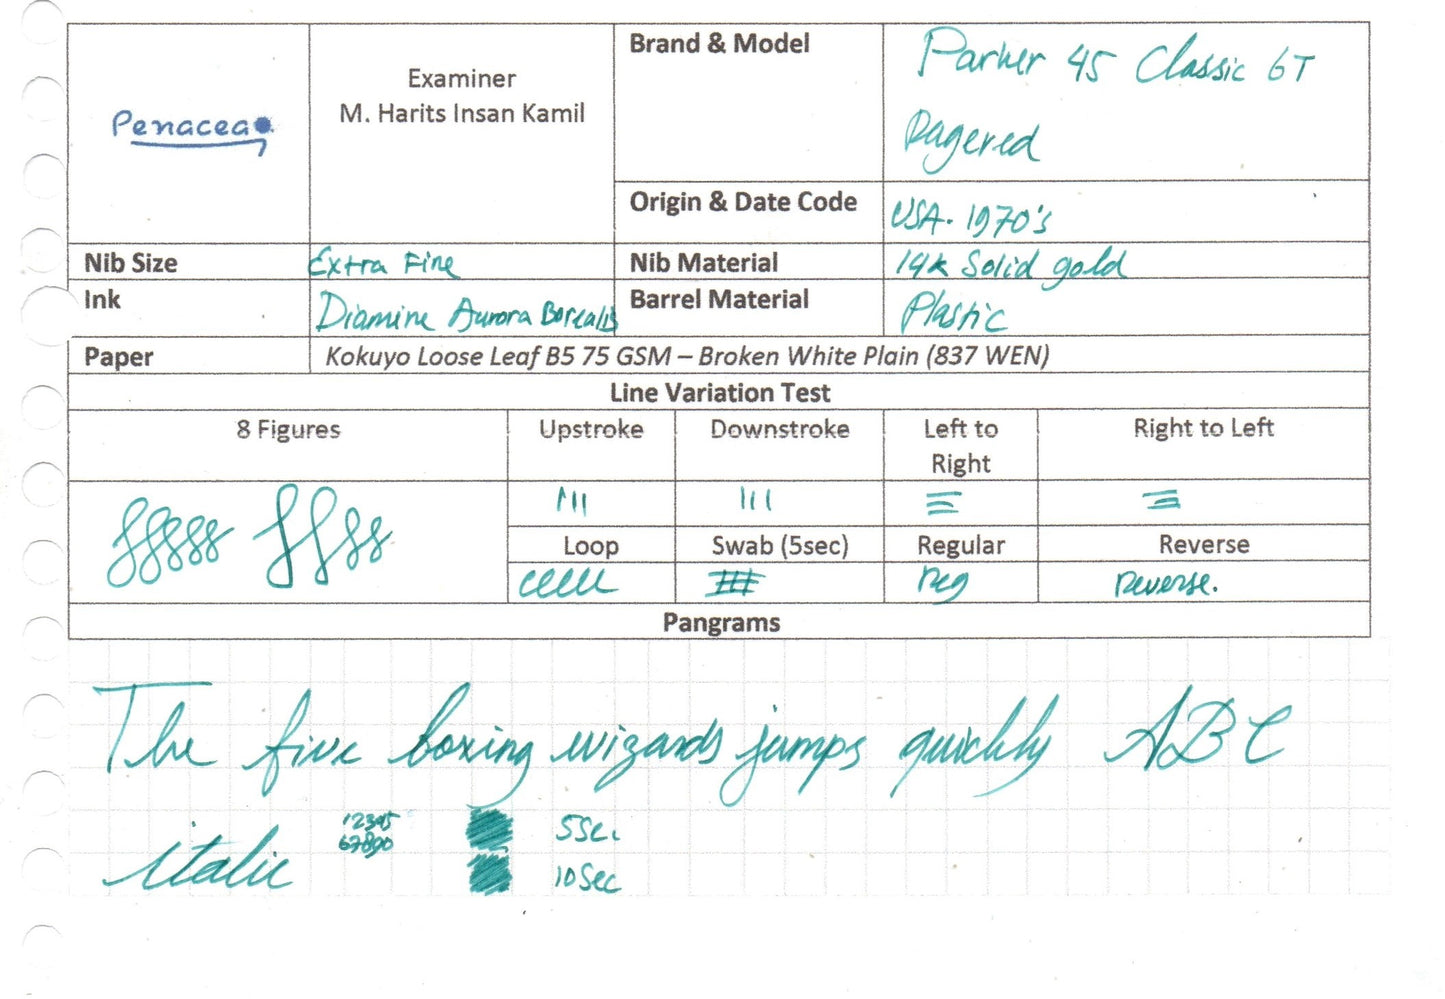 Penacea
Examiner
M. Harits Insan Kamil
Brand & Model
Parker 45 Classic GT
Dagered
Origin & Date Code
USA. 1970's
Nib Size
Extra Fine
Nib Material
14k Solid gold
Ink
Diamine Aurora Borealis
Barrel Material
Plastic
Paper
Kokuyo Loose Leaf B5 75 GSM – Broken White Plain (837 WEN)
Line Variation Test
8 Figures
Upstroke
Downstroke
Left to
Right
Right to Left
Loop
Swab (5sec)
Regular
Reverse
reg
Reverse.
Pangrams
The five boxing wizards jumps quickly ABC
italic
12345
67890
5sec.
10sec